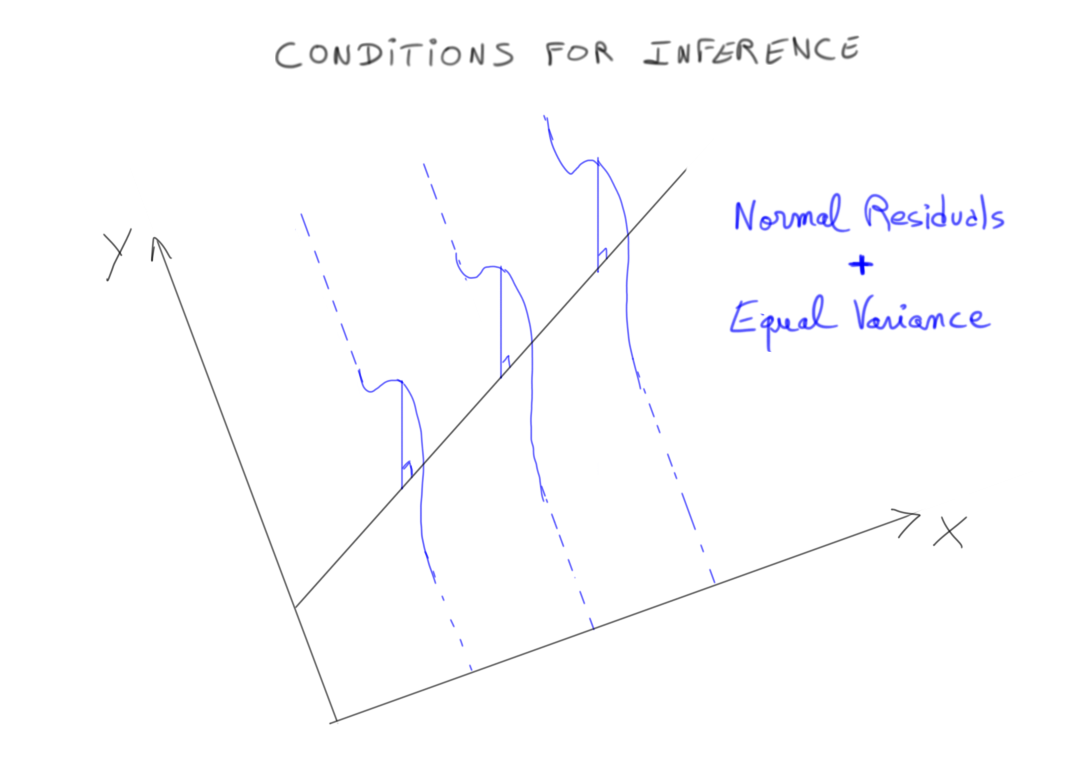 CONDITIONS FOR INFERENCE
Y
Normal Residuals
+
Equal Variance
X